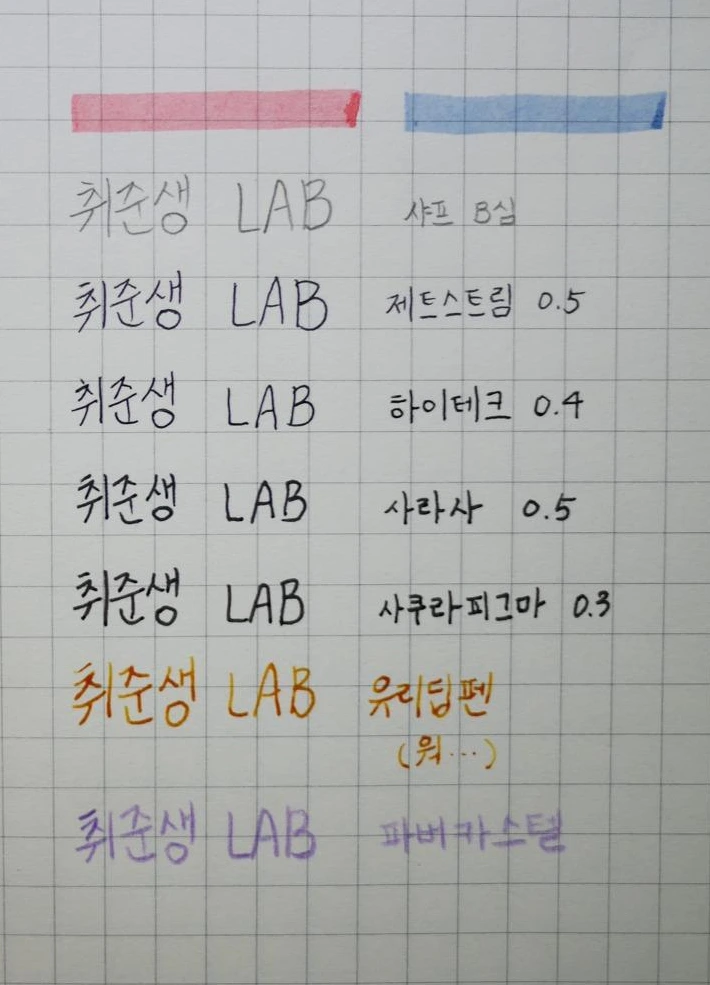 취준생 LAB 샤프 B심
취준생 LAB 제트스트림 0.5
취준생 LAB 하이테크 0.4
취준생 LAB 사라사 0.5
취준생 LAB 사쿠라피그마 0.3
취준생 LAB 유리딥펜
(워...)
취준생 LAB 파버카스텔